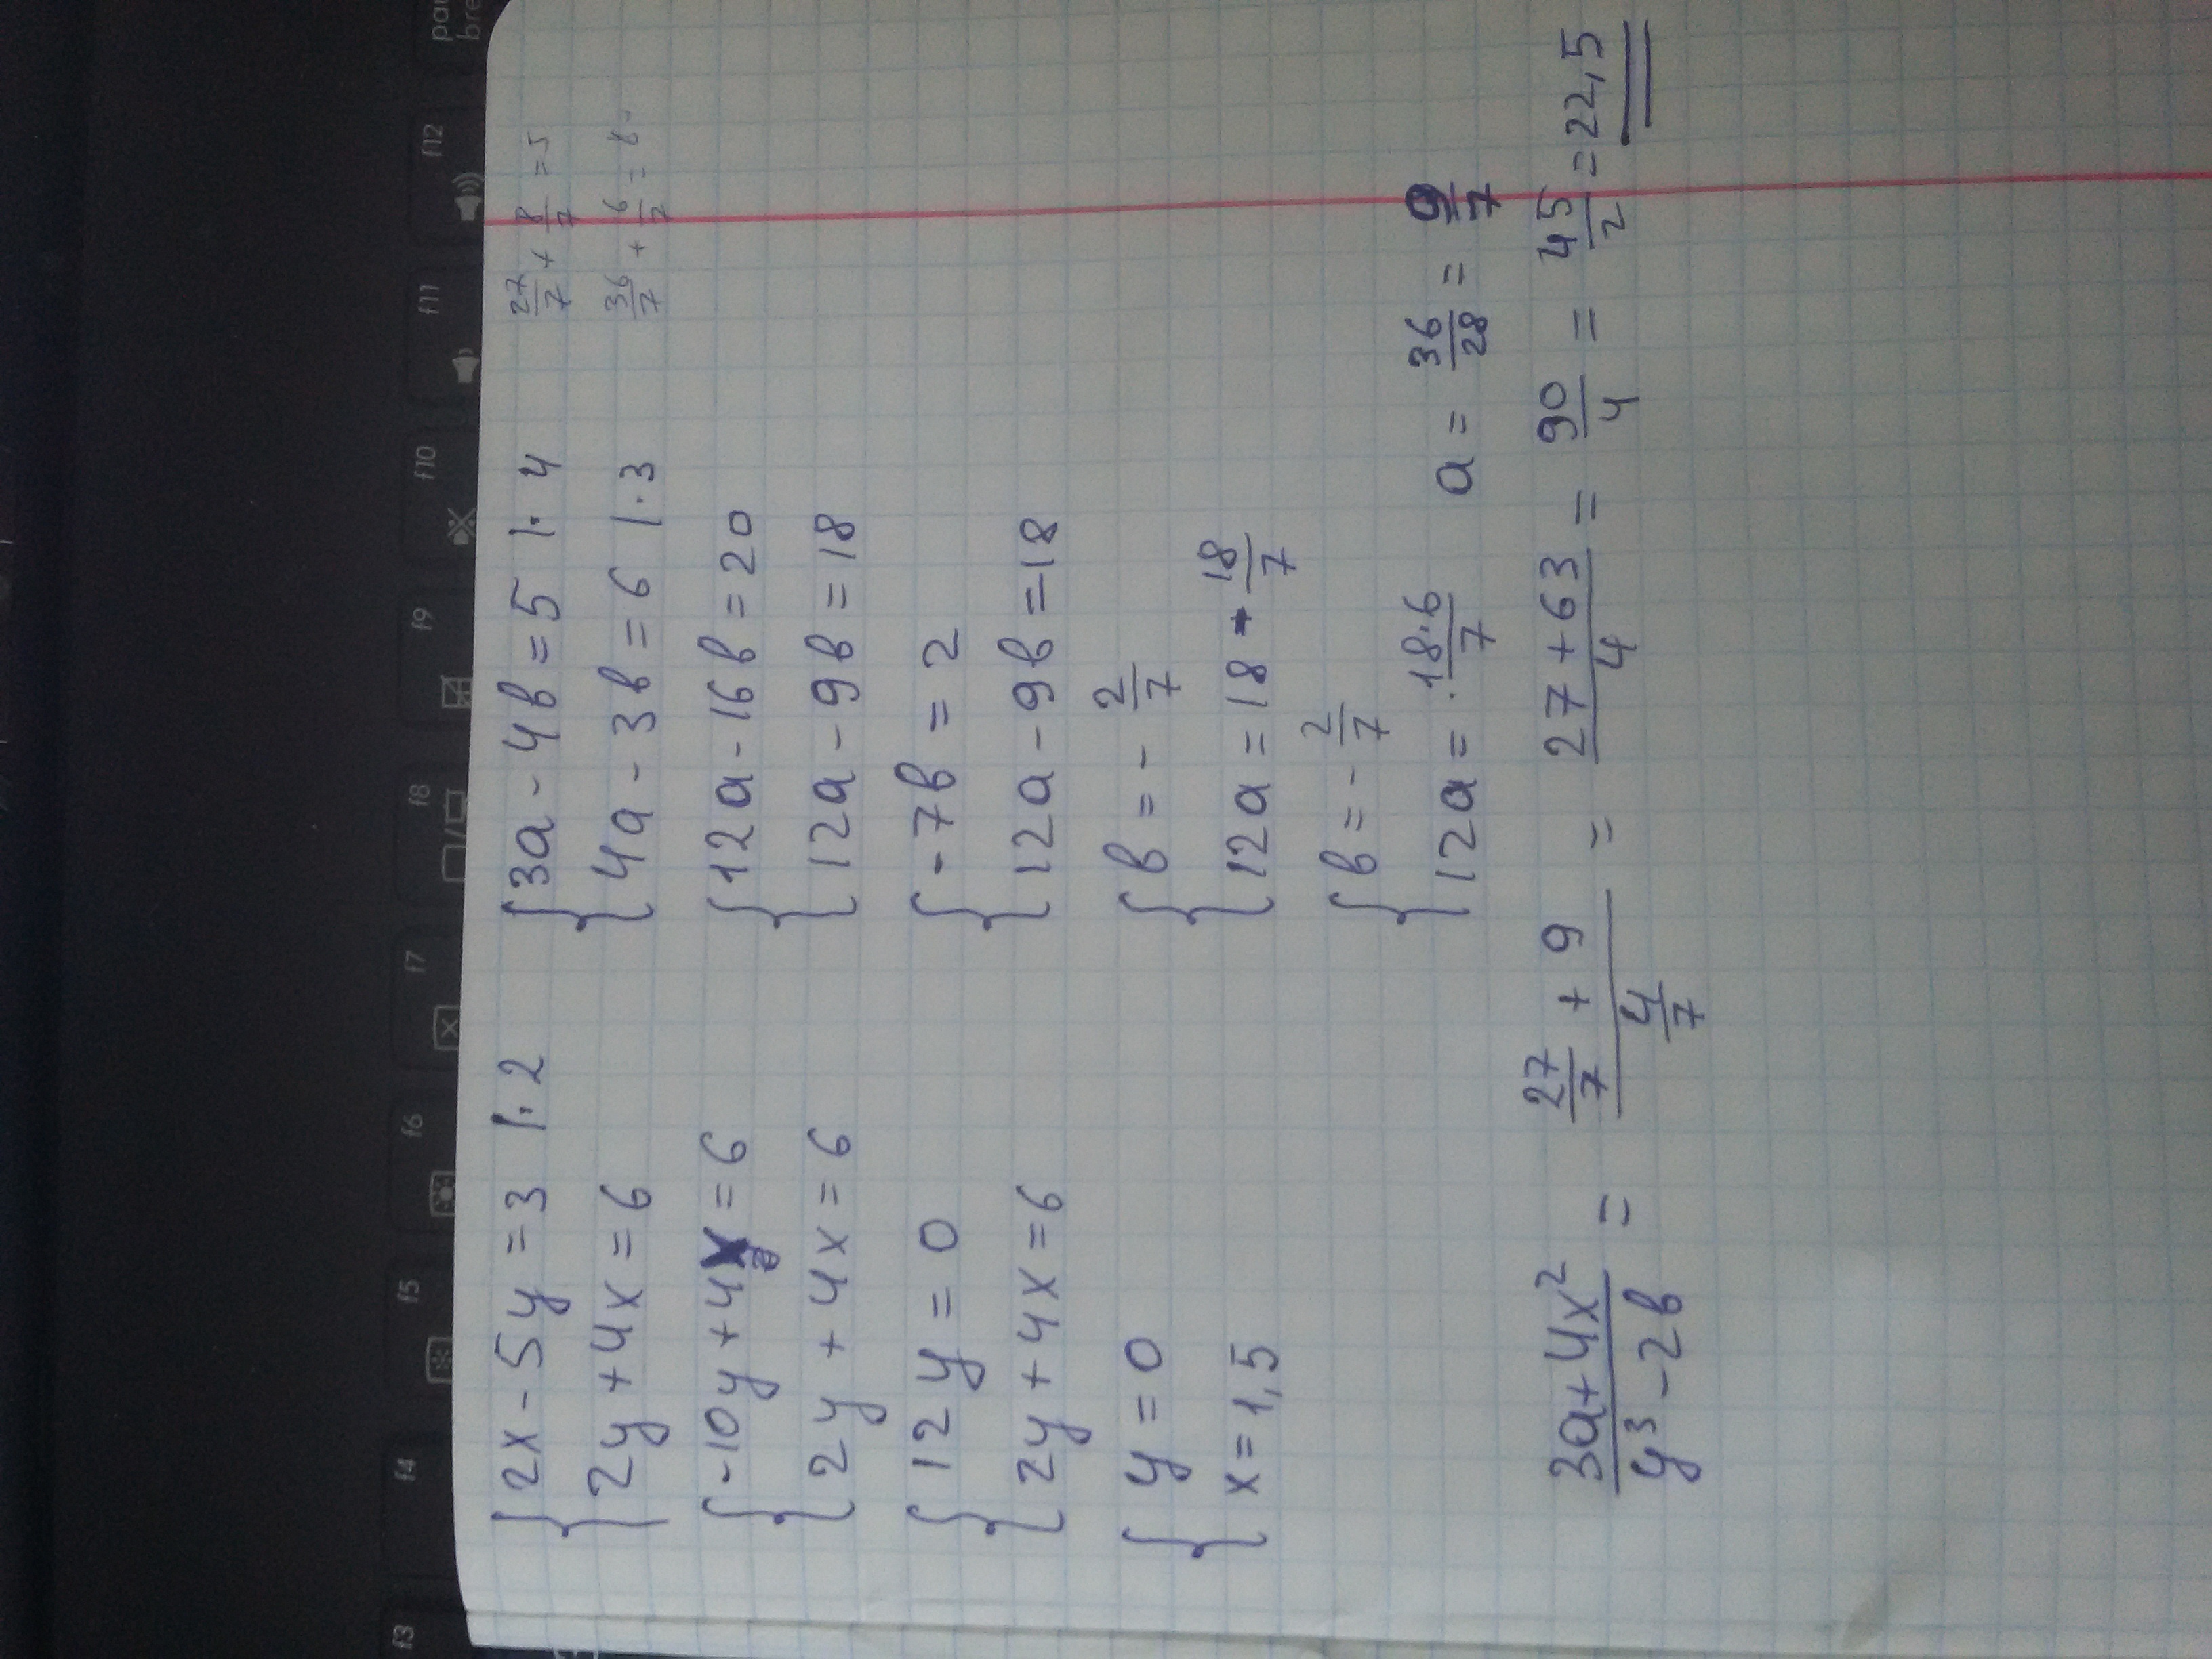 pau
bre
f12
f11
f10
f9
f8
f7
f6
f5
f4
f3
{2x - 5y = 3 |·2
{2y + 4x = 6
{-10y + 4x = 6
{2y + 4x = 6
{12y = 0
{2y + 4x = 6
{y = 0
{x = 1,5
{3a - 4b = 5 |·4
{4a - 3b = 6 |·3
{12a - 16b = 20
{12a - 9b = 18
{-7b = 2
{12a - 9b = 18
{b = -2/7
{12a = 18 - 18/7
{b = -2/7
{12a = 18·6/7 a = 36/28 = 9/7
27/7 + 8/7 = 5
36/7 + 6/7 =
(3a + 4x²)/(y³ - 2b) = (27/7 + 9)/(4/7) = (27 + 63)/4 = 90/4 = 45/2 = 22,5